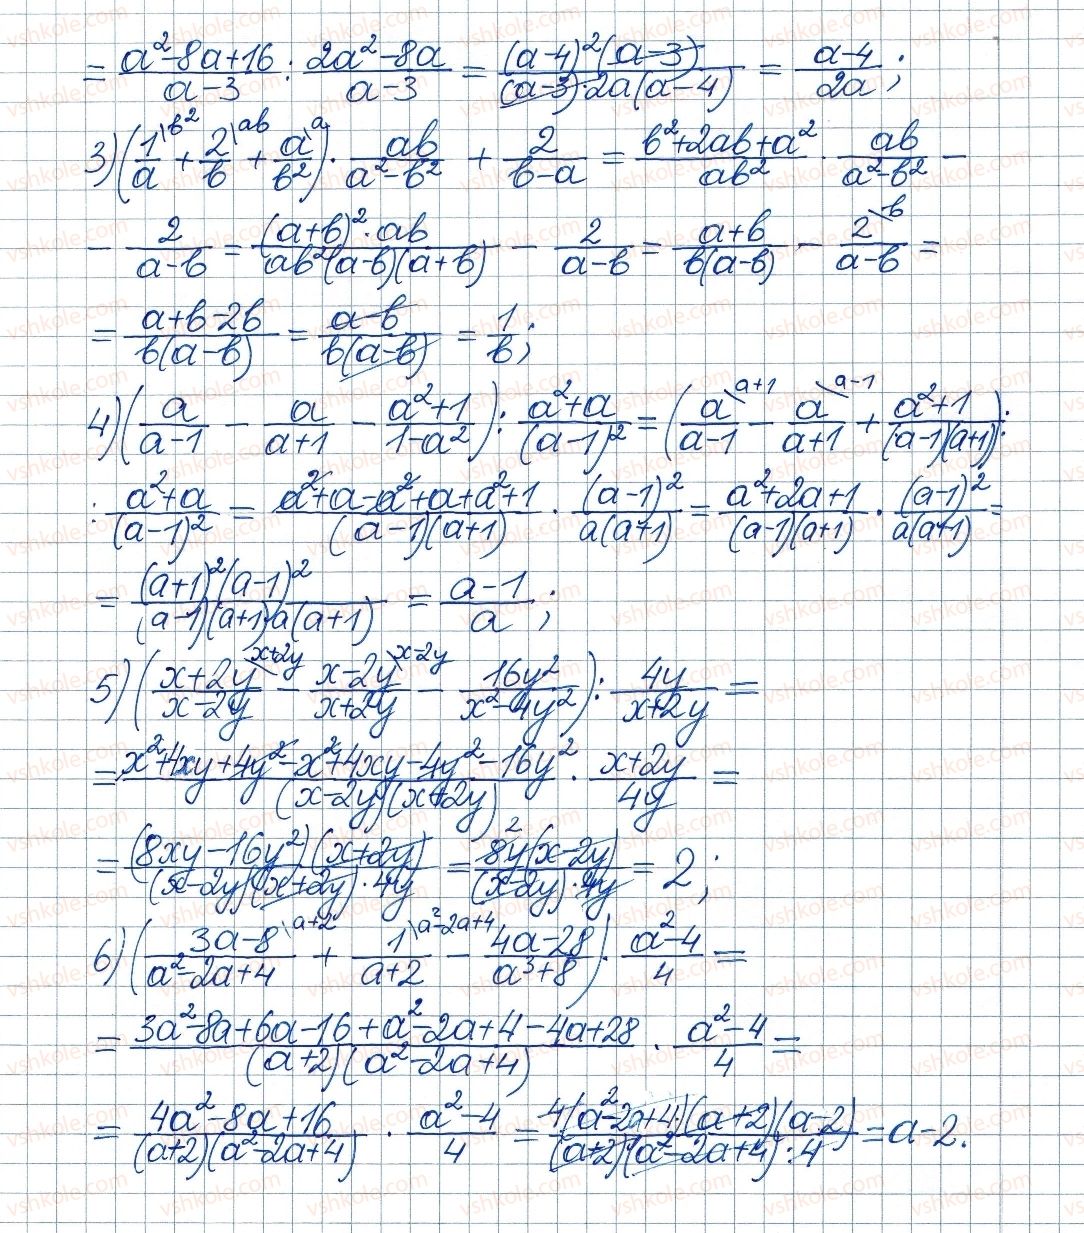 = (a²-8a+16)/(a-3) : (2a²-8a)/(a-3) = ((a-4)²(a-3))/((a-3)·2a(a-4)) = (a-4)/(2a) ;
3) (1/a \b² + 2/b \ab + a/b² \a) · ab/(a²-b²) + 2/(b-a) = (b²+2ab+a²)/(ab²) · ab/(a²-b²) -
- 2/(a-b) = ((a+b)²·ab)/(ab²(a-b)(a+b)) - 2/(a-b) = (a+b)/(b(a-b)) - 2/(a-b) \b =
= (a+b-2b)/(b(a-b)) = (a-b)/(b(a-b)) = 1/b ;
4) (a/(a-1) - a/(a+1) - (a²+1)/(1-a²)) : (a²+a)/(a-1)² = (a/(a-1) \a+1 - a/(a+1) \a-1 + (a²+1)/((a-1)(a+1))) :
: (a²+a)/(a-1)² = (a²+a-a²+a+a²+1)/((a-1)(a+1)) · (a-1)²/(a(a+1)) = (a²+2a+1)/((a-1)(a+1)) · (a-1)²/(a(a+1)) =
= ((a+1)²(a-1)²)/((a-1)(a+1)a(a+1)) = (a-1)/a ;
5) ((x+2y)/(x-2y) \x+2y - (x-2y)/(x+2y) \x-2y - 16y²/(x²-4y²)) : 4y/(x+2y) =
= (x²+4xy+4y²-x²+4xy-4y²-16y²)/((x-2y)(x+2y)) · (x+2y)/(4y) =
= ((8xy-16y²)(x+2y))/((x-2y)(x+2y)·4y) = (8y(x-2y))/((x-2y)·4y) 2 = 2 ;
6) ((3a-8)/(a²-2a+4) \a+2 + 1/(a+2) \a²-2a+4 - (4a-28)/(a³+8)) · (a²-4)/4 =
= (3a²-8a+6a-16+a²-2a+4-4a+28)/((a+2)(a²-2a+4)) · (a²-4)/4 =
= (4a²-8a+16)/((a+2)(a²-2a+4)) · (a²-4)/4 = (4(a²-2a+4)(a+2)(a-2))/((a+2)(a²-2a+4)·4) = a-2.
vshkole.com